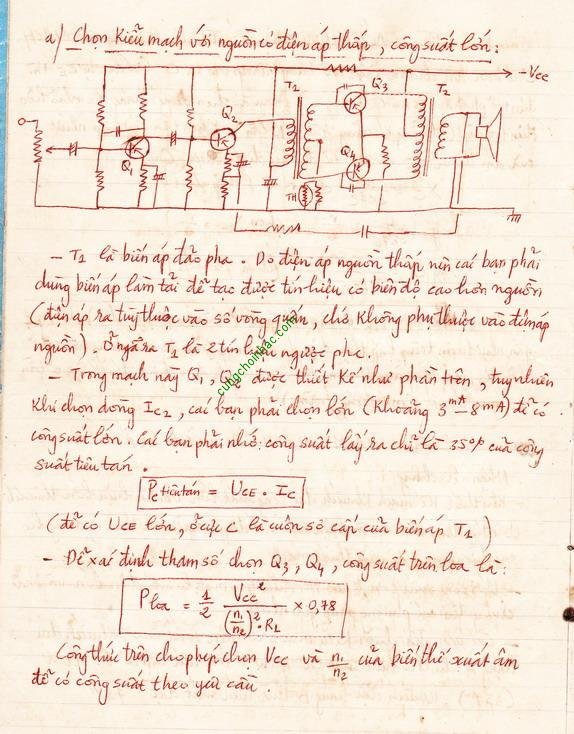 a) Chọn kiểu mạch với nguồn có điện áp thấp, công suất lớn:
-Vcc
T1
Q3
T2
Q2
Q1
Q4
TH
- T1 là biến áp đảo pha. Do điện áp nguồn thấp nên các bạn phải
dùng biến áp làm tải để tạo được tín hiệu có biên độ cao hơn nguồn
(điện áp ra tùy thuộc vào số vòng quấn, chứ không phụ thuộc vào điện áp
nguồn). Ở ngã ra T1 là 2 tín hiệu ngược pha.
- Trong mạch này Q1, Q2 được thiết kế như phần trên, tuy nhiên
khi chọn dòng Ic2, các bạn phải chọn lớn (khoảng 3mA - 8mA) để có
công suất lớn. Các bạn phải nhớ: công suất lấy ra chỉ là 35% của công
suất tiêu tán.
Pc tiêu tán = UCE . Ic
(để có UCE lớn, ở cực C là cuộn sơ cấp của biến áp T1)
- Để xác định tham số chọn Q3, Q4, công suất trên loa là:
Ploa = 1/2 Vcc²/((n1/n2)² . RL) × 0,78
Công thức trên cho phép chọn Vcc và n1/n2 của biến thế xuất âm
để có công suất theo yêu cầu.
cungchoinhac.com